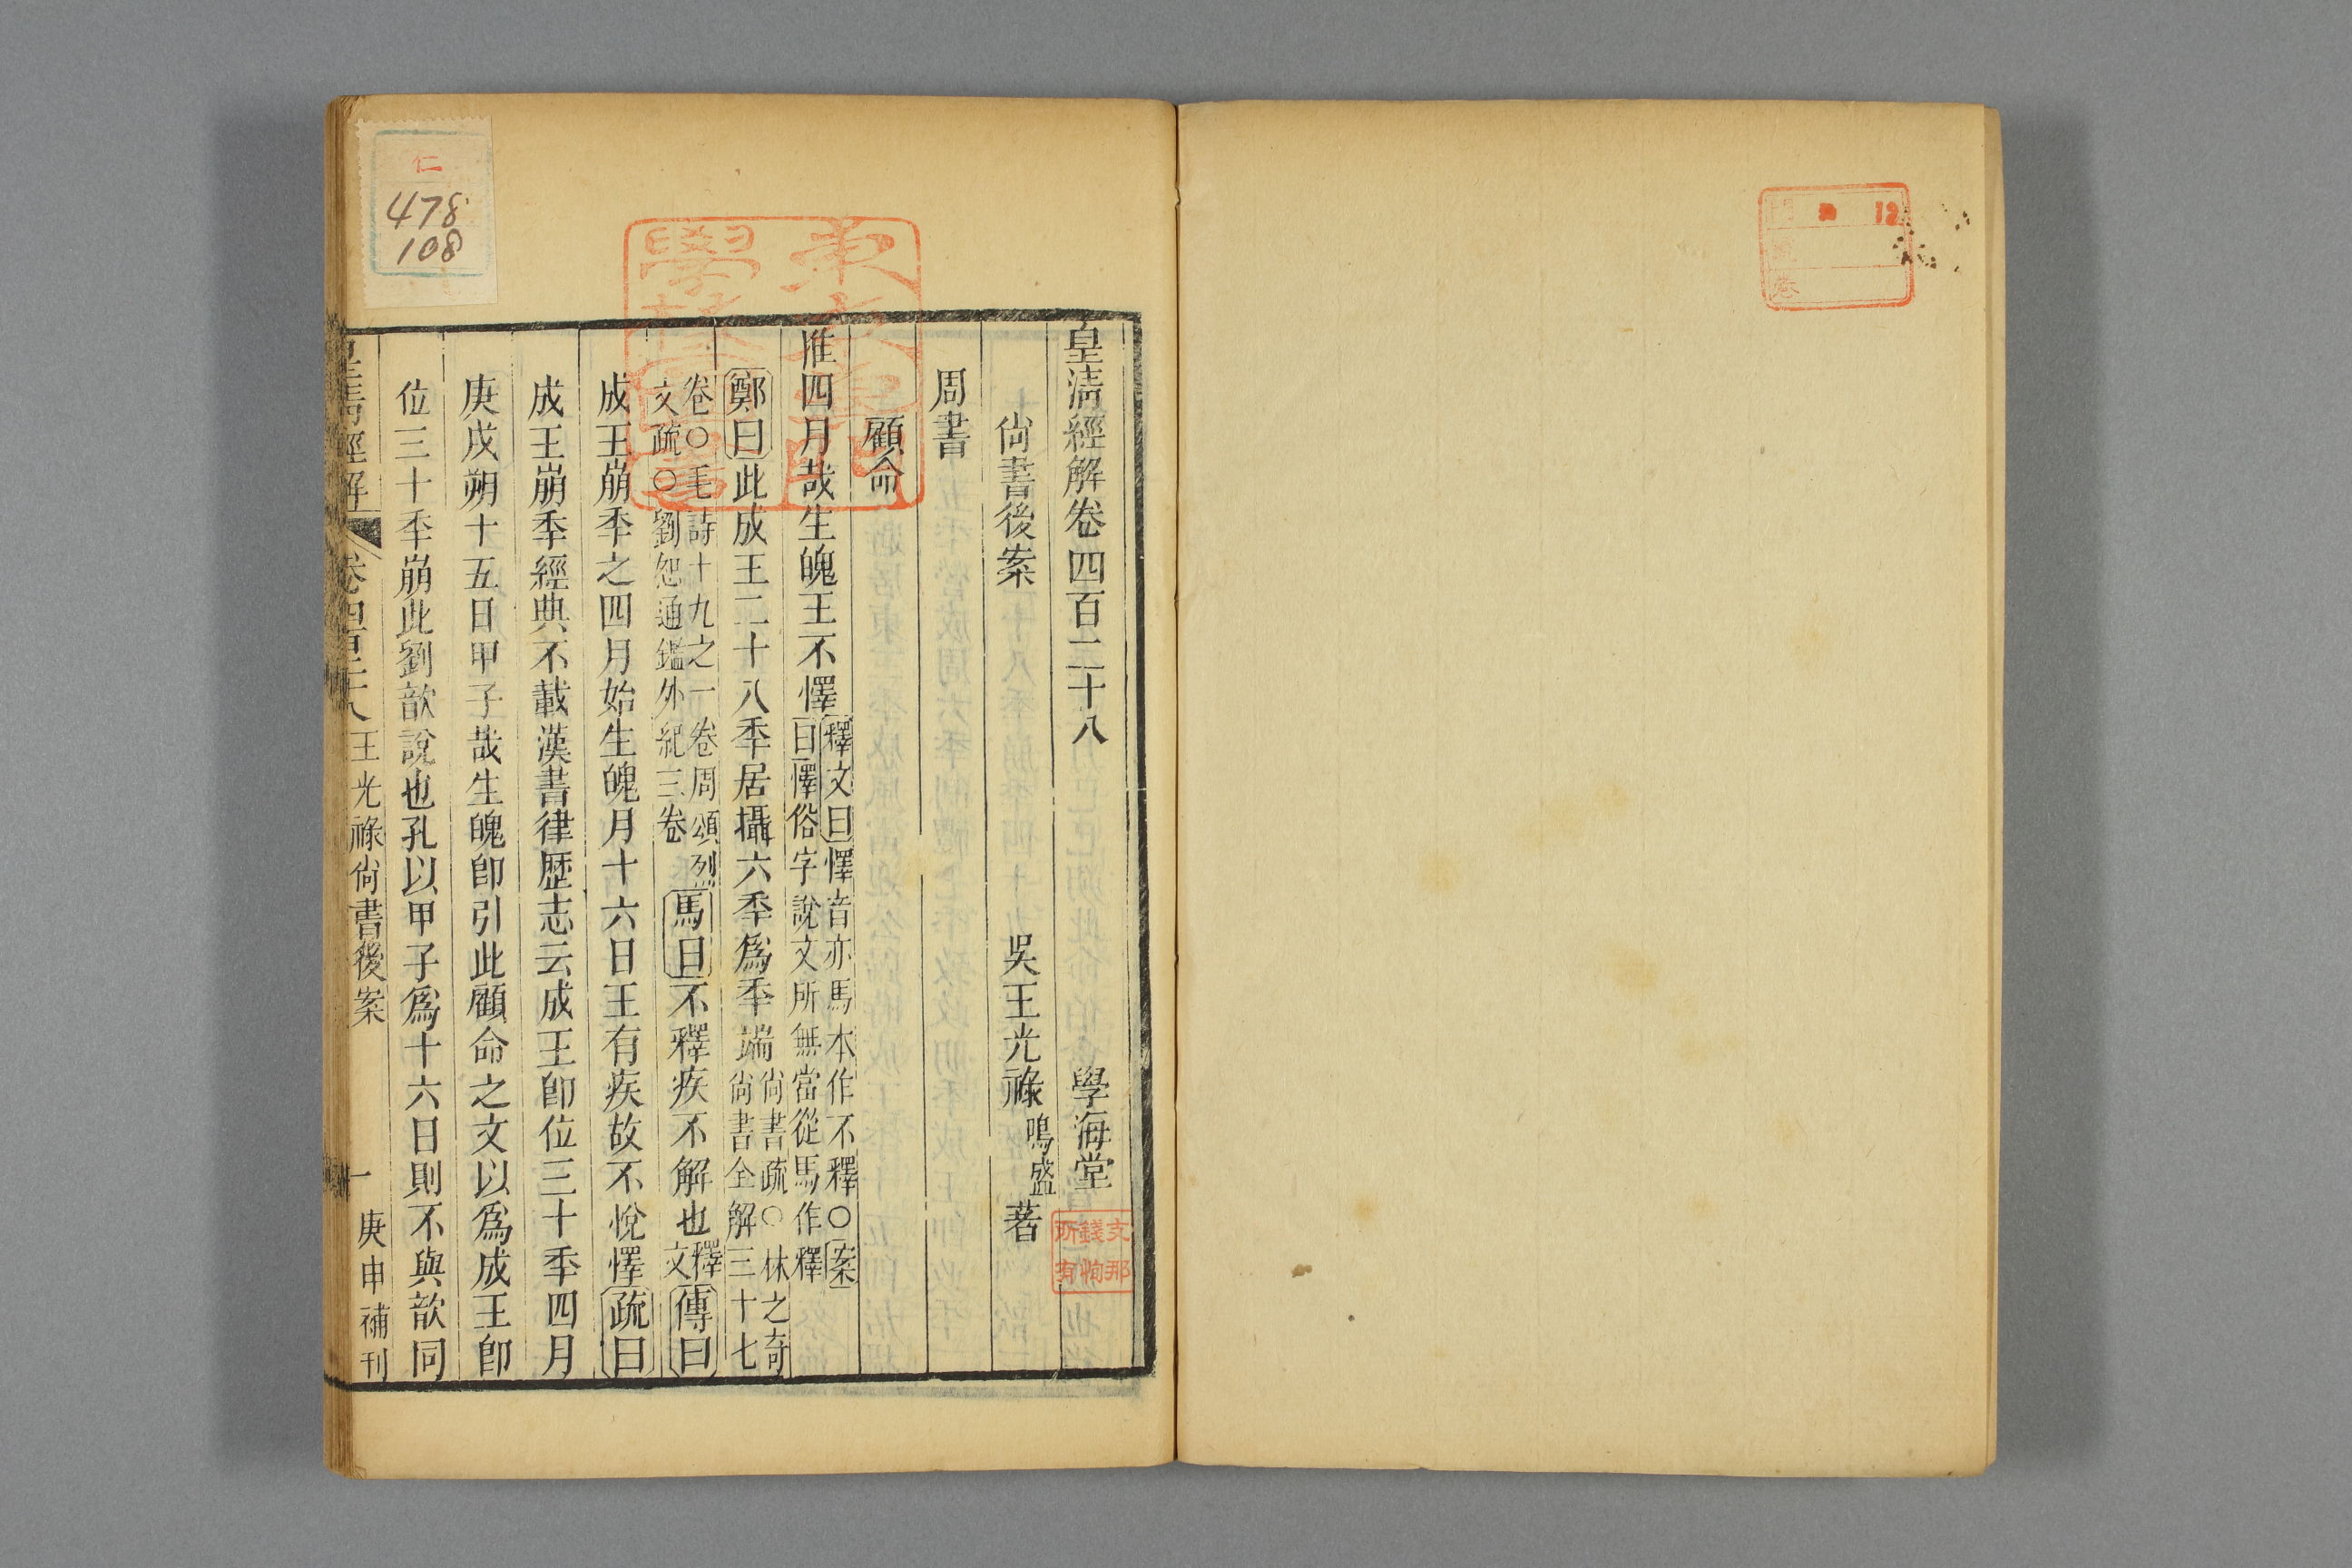 皇清經解卷四百二十八 學海堂
尙書後案 吳王光祿鳴盛著
周書
顧命
惟四月哉生魄王不懌釋文曰懌音亦馬本作不釋○案
曰懌俗字說文所無當從馬作釋
鄭曰此成王二十八秊居攝六秊爲秊端尙書疏○林之奇
尙書全解三十七
卷○毛詩十九之一卷周頌烈
文疏○劉恕通鑑外紀三卷馬曰不釋疾不解也釋
文傳曰
成王崩秊之四月始生魄月十六日王有疾故不悅懌疏曰
成王崩秊經典不載漢書律歷志云成王卽位三十秊四月
庚戌朔十五日甲子哉生魄卽引此顧命之文以爲成王卽
位三十秊崩此劉歆說也孔以甲子爲十六日則不與歆同
皇淸經解 卷四百二十八 王光祿尙書後案 一 庚申補刊
仁
478
108
支那
錢恂
所有
12
門
號
卷